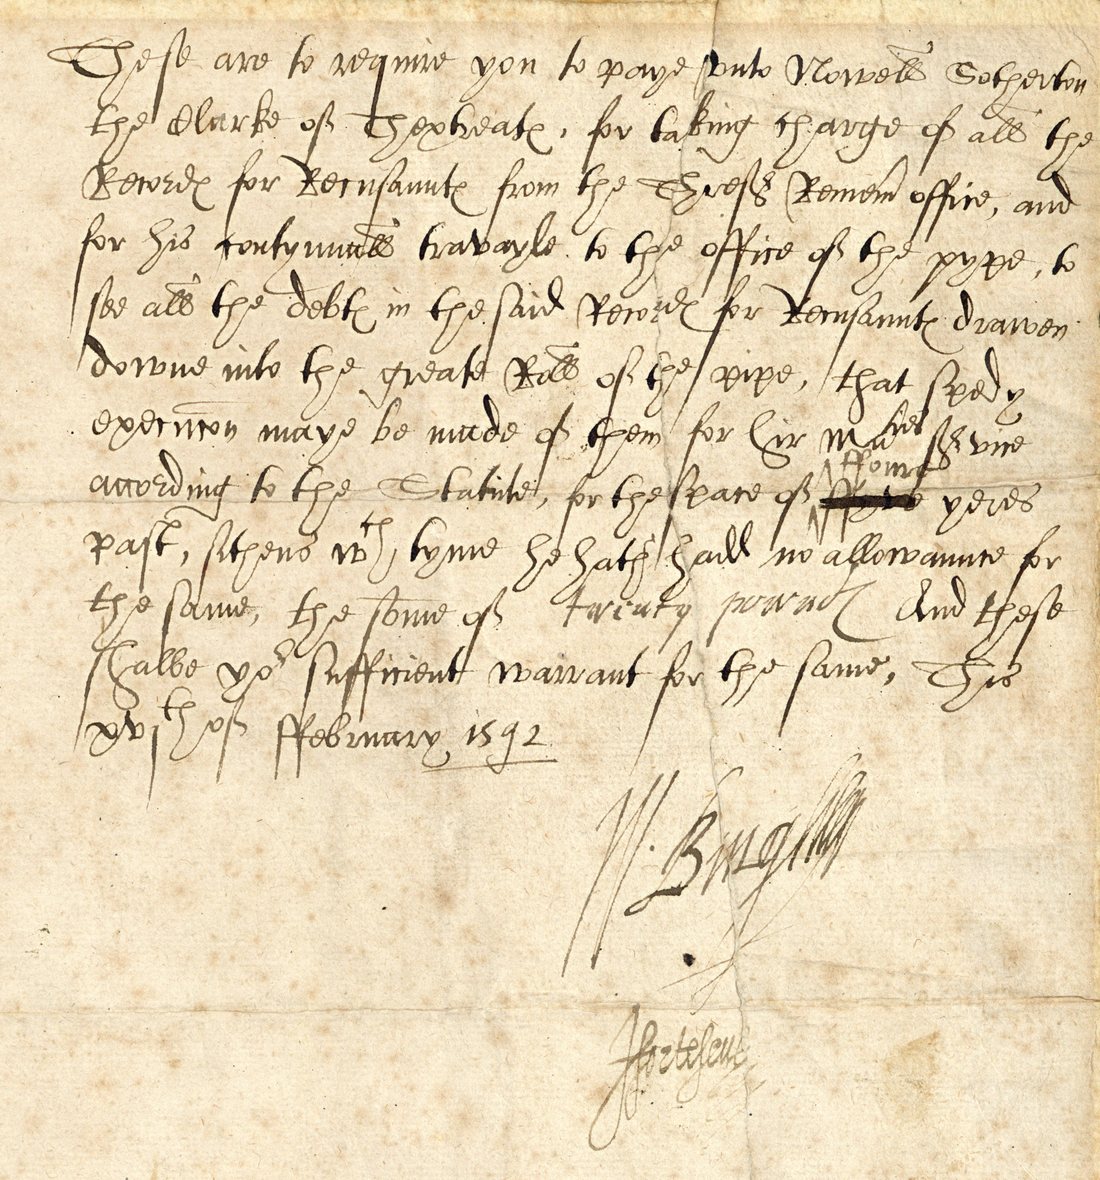 These are to require you to paye vnto Nowell Sotherton
the Clarke of Thextreates, for taking charge of all the
Recordes for Recusauntes from the Thresr Remem office, and
for his contynuall travayle to the office of the pype, to
see all the debtes in the said Recordes for Recusauntes drawen
downe into the greate Roll of the pipe, that spedy
execucon maye be made of them for hir Maties service
according to the Statute, for the space of ffowre yeres
past, sithens wch tyme he hath hadd no allowaunce for
the same, the some of twenty powndes And these
shalbe yor sufficient warrant for the same, This
xvjth of ffebruary 1592
W. Burghley
JFortescue